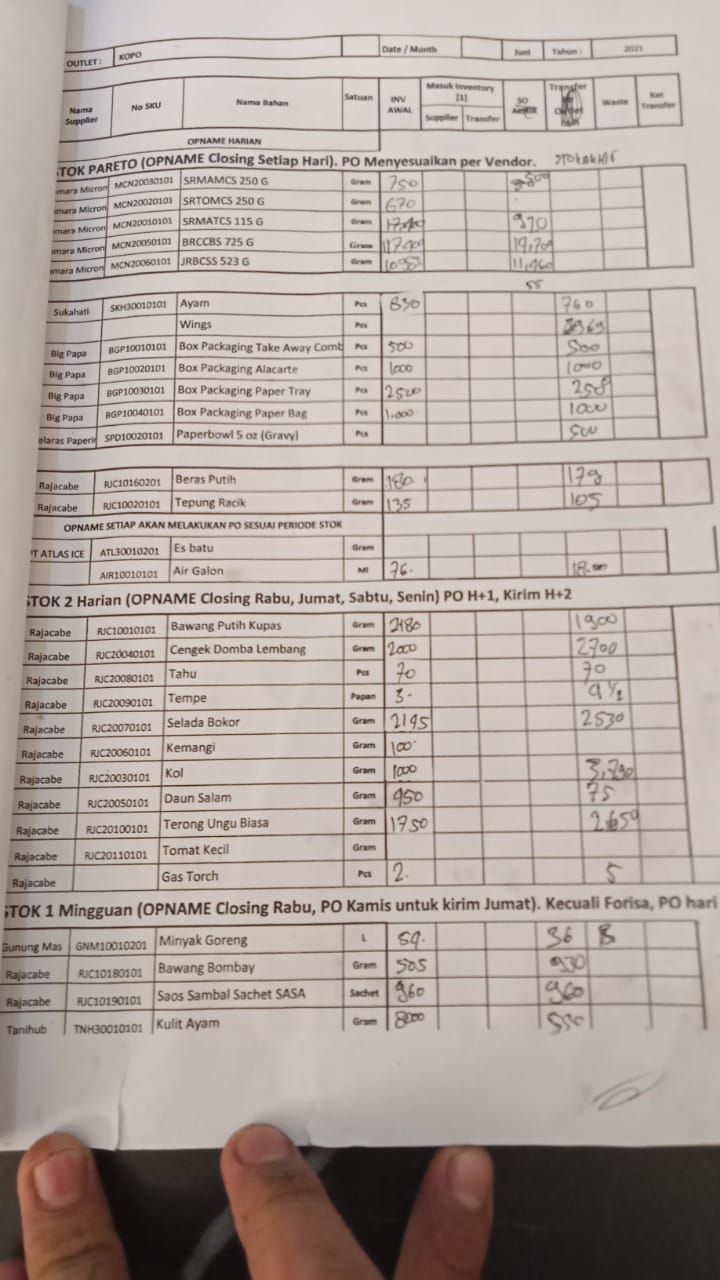 OUTLET : KOPO Date / Month Juni Tahun : 2021
Nama Supplier No SKU Nama Bahan Satuan INV AWAL Masuk Inventory [1] Supplier Transfer SO Transfer Waste Ket Transfer
OPNAME HARIAN
STOK PARETO (OPNAME Closing Setiap Hari). PO Menyesuaikan per Vendor.
mara Micron MCN20030101 SRMAMCS 250 G Gram 750
mara Micron MCN20020101 SRTOMCS 250 G Gram 670
mara Micron MCN20010101 SRMATCS 115 G Gram 970
mara Micron MCN20050101 BRCCBS 725 G Gram
mara Micron MCN20060101 JRBCSS 523 G Gram 11,960
55
Sukahati SKH30010101 Ayam Pcs 830 760
Wings Pcs
Big Papa BGP10010101 Box Packaging Take Away Comb Pcs 500 500
Big Papa BGP10020101 Box Packaging Alacarte Pcs 1000 1000
Big Papa BGP10030101 Box Packaging Paper Tray Pcs 2500
Big Papa BGP10040101 Box Packaging Paper Bag Pcs 1.000 1000
elaras Paperi SPD10020101 Paperbowl 5 oz (Gravy) Pcs 500
Rajacabe RJC10160201 Beras Putih Gram 180
Rajacabe RJC10020101 Tepung Racik Gram 135 105
OPNAME SETIAP AKAN MELAKUKAN PO SESUAI PERIODE STOK
PT ATLAS ICE ATL30010201 Es batu Gram
AIR10010101 Air Galon Ml 76.
STOK 2 Harian (OPNAME Closing Rabu, Jumat, Sabtu, Senin) PO H+1, Kirim H+2
Rajacabe RJC10010101 Bawang Putih Kupas Gram 2480 1900
Rajacabe RJC20040101 Cengek Domba Lembang Gram 2000 2700
Rajacabe RJC20080101 Tahu Pcs 70 70
Rajacabe RJC20090101 Tempe Papan 3- 9 1/2
Rajacabe RJC20070101 Selada Bokor Gram 2195 2530
Rajacabe RJC20060101 Kemangi Gram 100
Rajacabe RJC20030101 Kol Gram 1000
Rajacabe RJC20050101 Daun Salam Gram 950 75
Rajacabe RJC20100101 Terong Ungu Biasa Gram 1750 2650
Rajacabe RJC20110101 Tomat Kecil Gram
Rajacabe Gas Torch Pcs 2. 5
STOK 1 Mingguan (OPNAME Closing Rabu, PO Kamis untuk kirim Jumat). Kecuali Forisa, PO hari
Gunung Mas GNM10010201 Minyak Goreng L 59. 36 B
Rajacabe RJC10180101 Bawang Bombay Gram 505 930
Rajacabe RJC10190101 Saos Sambal Sachet SASA Sachet 960 960
Tanihub TNH30010101 Kulit Ayam Gram 8000